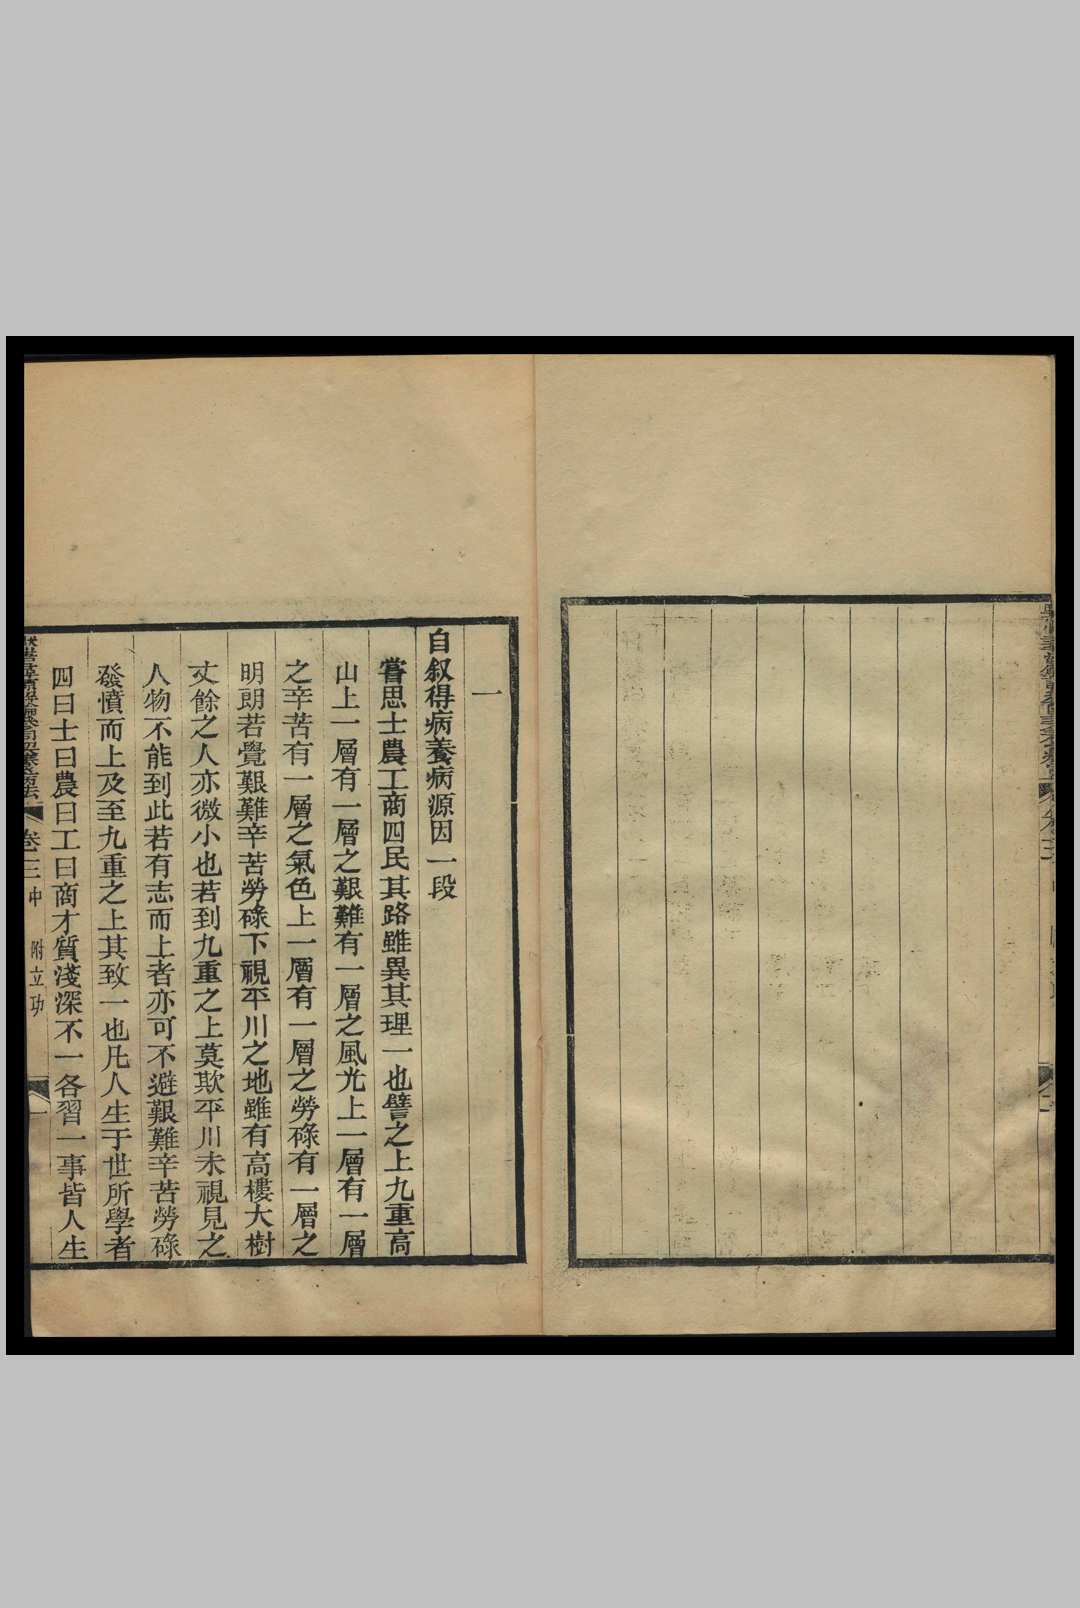 一
自叙得病養病源因一段
嘗思士農工商四民其路雖異其理一也譬之上九重高
山上一層有一層之艱難有一層之風光上一層有一層
之辛苦有一層之氣色上一層有一層之勞碌有一層之
明朗若覺艱難辛苦勞碌下視平川之地雖有高樓大樹
丈餘之人亦微小也若到九重之上莫欺平川未視見之
人物不能到此若有志而上者亦可不避艱難辛苦勞碌
發憤而上及至九重之上其致一也凡人生于世所學者
四曰士曰農曰工曰商才質淺深不一各習一事皆人生
卷三 中 附立功 一